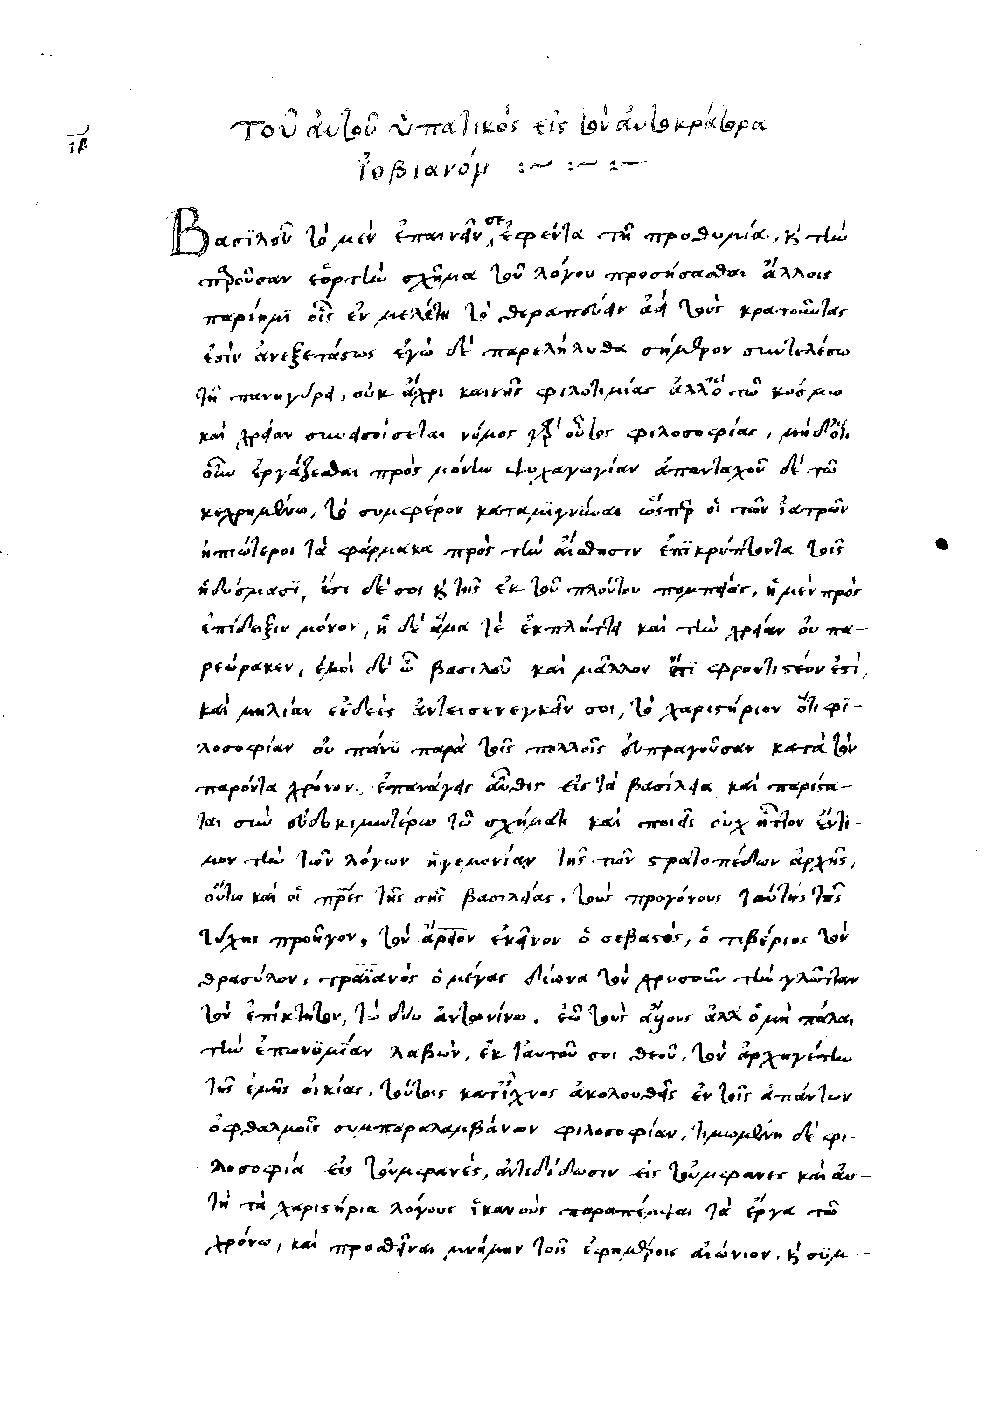 ιβ
Τοῦ αὐτοῦ ὑπατικὸς εἰς τὸν αὐτοκράτορα
Ἰοβιανόν
Βασιλεῦ τὸ μὲν ἐπαινεῖν σε, ἐφέντα τῇ προθυμία, κ τὴν
παροῦσαν ἑορτὴν σχῆμα τοῦ λόγου προστήσασθαι ἄλλοις
παρίημι οἷς ἐν μελέτη τὸ θεραπεύειν ἀεὶ τοὺς κρατοῦντας
ἐστὶν ἀνεξετάστως ἐγὼ δὲ παρελήλυθα σήμερον συντελέσων
τῇ πανηγύρει, οὐκ ἄχρι κενῆς φιλοτιμίας ἀλλ' ὅ τω κόσμω
καὶ χρείαν συνεισοίσεται νόμος γὰρ οὗτος φιλοσοφίας, μηδὲν ὅτι
οὕτω ἐργάζεσθαι πρὸς μόνην ψυχαγωγίαν ἁπανταχοῦ δὲ τῶ
κεχαρισμένω, τὸ συμφέρον καταμιγνύναι ὥσπερ οἱ τῶν ἰατρῶν
ἠπιώτεροι τὰ φάρμακα πρὸς τὴν αἴσθησιν ἐπικρύπτοντα τοῖς
ἡδύσμασι, ἔστι δέ σοι κ τῆς ἐκ τοῦ πλούτου πομπείας, ἡ μὲν πρὸς
ἐπίδειξιν μόνον, ἡ δὲ ἅμα τε ἐκπλήττει καὶ τὴν χρείαν οὐ πα-
ρεώρακεν, ἐμοὶ δὲ ὦ βασιλεῦ καὶ μᾶλλον ἔτι φροντιστέον ἐστὶ,
καὶ μηλίαν ἐνδεῖς ἀντεισενεγκεῖν σοι, τὸ χαριστήριον ὅτι φι-
λοσοφίαν οὐ πάνυ παρὰ τοῖς πολλοῖς εὐπραγοῦσαν κατὰ τὸν
παρόντα χρόνον, ἐπανάγεις αὖθις εἰς τὰ βασίλεια καὶ παρίστα-
ται σὺν εὐδοκιμωτέρω τῶ σχήματι καὶ ποιεῖς οὐχ ἧττον ἔντι-
μον τὴν τῶν λόγων ἡγεμονίαν τῆς τῶν στρατοπέδων ἀρχῆς,
οὕτω καὶ οἱ πατέρες τῆς σῆς βασιλείας, τοὺς προγόνους ταύτης τῆς
τύχης προῆγον, τὸν ἄρειον ἐκεῖνον ὁ σεβαστὸς, ὁ τιβέριος τὸν
θρασύλον, τραϊανὸς ὁ μέγας δίωνα τὸν χρυσοῦν τὴν γλῶτταν
τὸν ἐπίκτητον, τὼ δύο ἀντωνίνω. ἐῶ τοὺς ἄλλους ἀλλ' ὁ μὴ πάλαι
τὴν ἐπωνυμίαν λαβὼν, ἐκ ταυτοῦ σοι θεοῦ, τὸν ἀρχηγέτην
τῆς ἐμῆς οἰκίας, τούτοις κατ' ἴχνος ἀκολουθεῖς ἐν τοῖς ἁπάντων
ὀφθαλμοῖς συμπαραλαμβάνων φιλοσοφίαν, τιμωμένη δὲ φι-
λοσοφία εἰς τοὐμφανὲς, ἀντιδίδωσιν εἰς τοὐμφανὲς καὶ αὐ-
τὴ τὰ χαριστήρια λόγους ἱκανοὺς παραπέμψαι τὰ ἔργα τῶ
χρόνω, καὶ προσθεῖναι μνήμην τοῖς ἐφημέροις αἰώνιον, κ συμ-